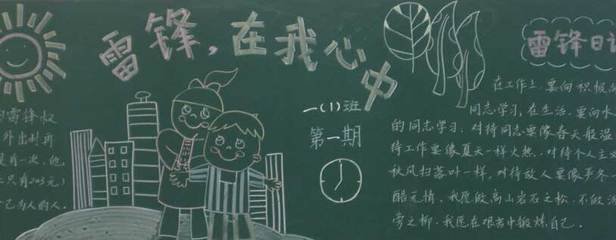 雷锋,在我心中
一(1)班
第一期
雷锋日记
的雷锋叔
外出到
是有一次,他
只有
己为人的人.
在工作上,要向积极
同志学习,在生活,要向
的同志学习.对待同志要像春天般
待工作要像夏天一样火热.对待个人主
秋风扫落叶一样,对待敌人要像严冬
酷无情,我愿做高山岩石之松,不做
旁之柳.我愿在艰苦中锻炼自己.